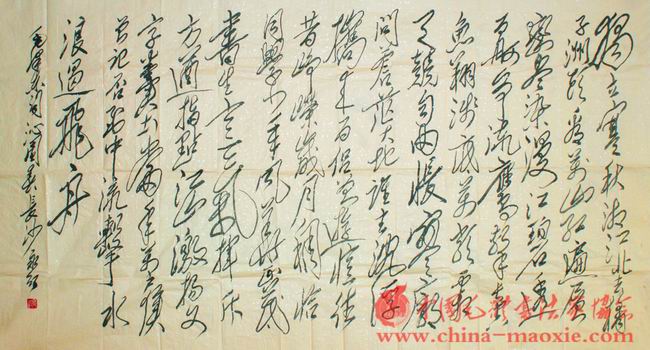 独立寒秋湘江北去橘
子洲头看万山红遍层
林尽染漫江碧透百
舸争流鹰击长空
鱼翔浅底万类霜
天竞自由怅寥廓
问苍茫大地谁主沉浮
携来百侣曾游忆往
昔峥嵘岁月稠恰
同学少年风华正茂
书生意气挥斥
方遒指点江山激扬文
字粪土当年万户侯
曾记否到中流击水
浪遏飞舟
毛泽东词沁园春长沙
中国毛体书法家协会
www.china-maoxie.com